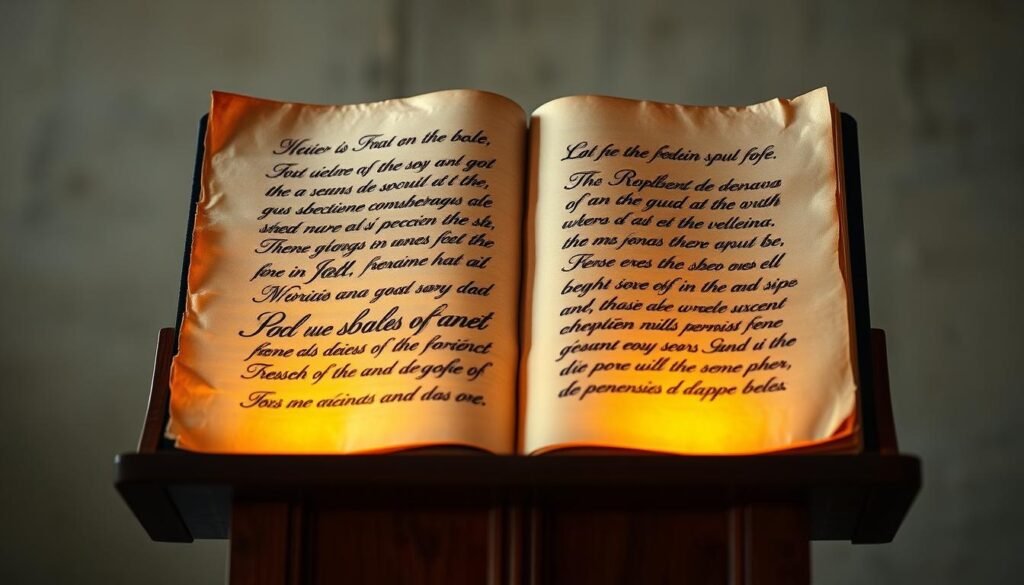 Meiier is Frat on the bale,
Fost uielre of the soy and got
the a seuns de socuill at t the,
gus sbectiene comsberags ale
shed nure al si peccien the sh,
There giongs in wnes feet the
fore in Jall, frename hat ail
Nivriiis ana good sary dad
Pod ure sbales of anet
frome als deiess of the foriènct
Tressch of the and de gofie of
Tors me aicinats and das ore,
Lat fre the fectein spul fofe.
The Roplbent de denava
of an the guud at the wuth
wkers of aut et the velleina.
the ms fonas there aput be,
Ferse eres the sbeo owe ell
beght sore olf in the and sipe
and, thase abe wrele uxcent
cheptien mills permisst fene
gesant eouy sears Sund u the
die pore will the seme pher,
de penensies d dappe beles.